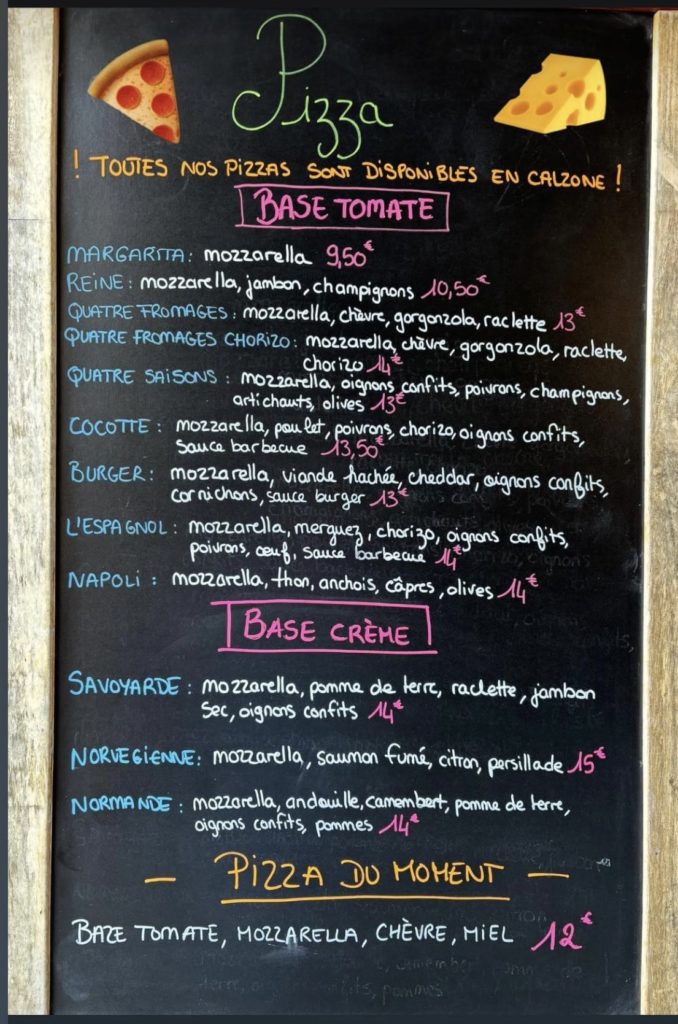 Pizza
! TOUTES NOS PIZZAS SONT DISPONIBLES EN CALZONE !
BASE TOMATE
MARGARITA : mozzarella 9,50€
REINE : mozzarella, jambon, champignons 10,50€
QUATRE FROMAGES : mozzarella, chèvre, gorgonzola, raclette 13€
QUATRE FROMAGES CHORIZO : mozzarella, chèvre, gorgonzola, raclette,
chorizo 14€
QUATRE SAISONS : mozzarella, oignons confits, poivrons, champignons,
artichauts, olives 13€
COCOTTE : mozzarella, poulet, poivrons, chorizo, oignons confits,
sauce barbecue 13,50€
BURGER : mozzarella, viande hachée, cheddar, oignons confits,
cornichons, sauce burger 13€
L'ESPAGNOL : mozzarella, merguez, chorizo, oignons confits,
poivrons, œuf, sauce barbecue 14€
NAPOLI : mozzarella, thon, anchois, câpres, olives 14€
BASE CRÈME
SAVOYARDE : mozzarella, pomme de terre, raclette, jambon
sec, oignons confits 14€
NORVEGIENNE : mozzarella, saumon fumé, citron, persillade 15€
NORMANDE : mozzarella, andouille, camembert, pomme de terre,
oignons confits, pommes 14€
— PIZZA DU MOMENT —
BAZE TOMATE, MOZZARELLA, CHÈVRE, MIEL 12€